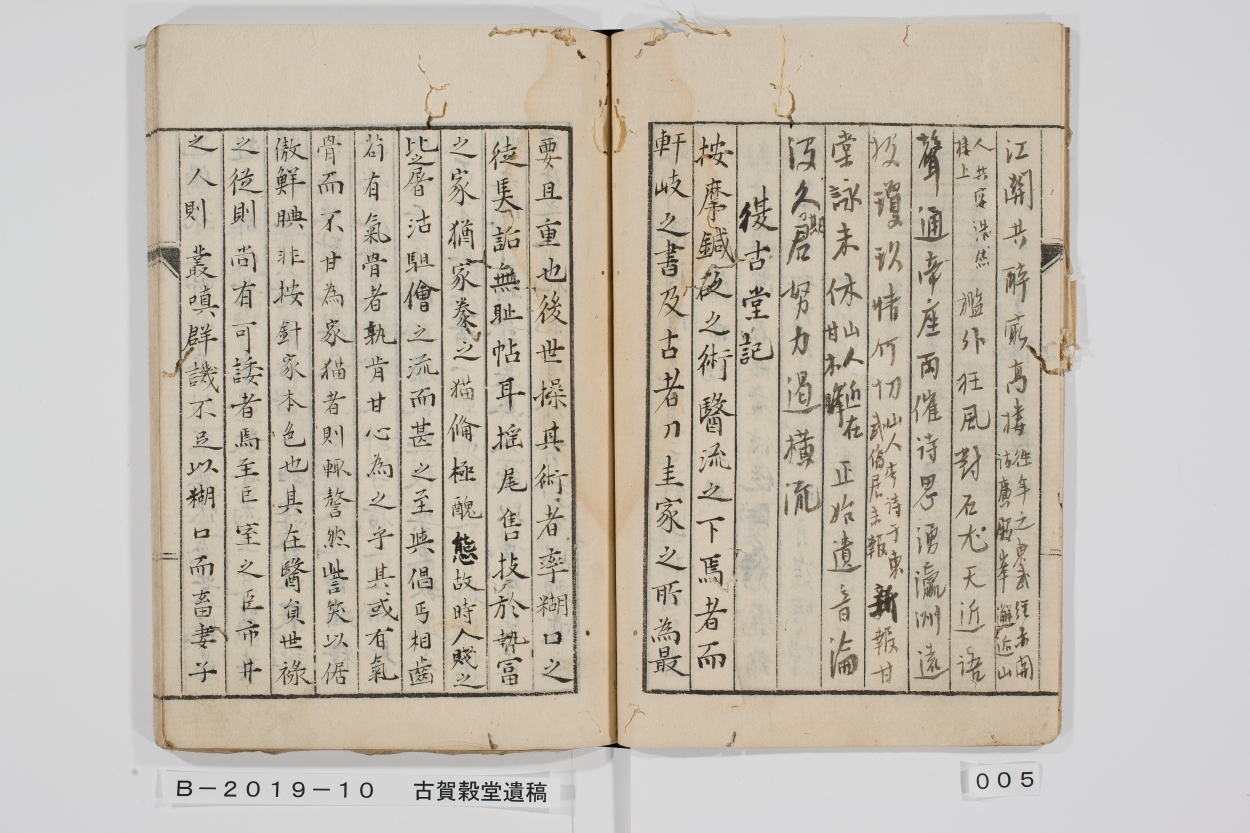 江關共醉最高樓 往年之東武経赤間訪廣島鵬峯邂逅山
人共宗浩然樓上 檻外狂風對石尤天近語
聲通帝座雨催诗思湧瀛洲遠
投瓊玖情何切 山人有诗于東武僑居未報 新報甘
棠詠未休 山人所在甘木驛 正始遺音淪
没久期君努力遏横流
復古堂記
按摩鍼砭之術醫流之下焉者而
軒岐之書及古者刀圭家之所為最
要且重也後世操其術者率糊口之
徒奊詬無耻帖耳揺尾售技於埶冨
之家猶家豢之猫倫極醜態故時人賤之
比之屠沽駔儈之流而甚之至與倡丐相齒
苟有氣骨者孰肯甘心為之乎其或有氣
骨而不甘為家猫者則輙謷然訾笑以倨
傲鮮腆非按針家本色也其在醫員世祿
之徒則尚有可諉者焉至巨室之臣市井
之人則叢嗔群譏不足以糊口而畜妻子
B－2019－10 古賀穀堂遺稿
005